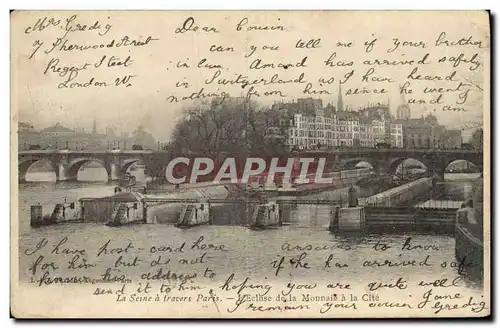 Mrs. Gredig
7 Sherwood Street
Regent Street
London W.
Dear Cousin
can you tell me if your brother
in law Amand has arrived safely
in Switzerland as I have heard
nothing from him since he went
and I am
CPArama.com
I have post-card here anxious to know
for him but do not if he has arrived safe
have address to hoping you are quite well
send it to him, I remain your cousin Jane Gredig
La Seine à travers Paris. - L'Ecluse de la Monnaie à la Cité